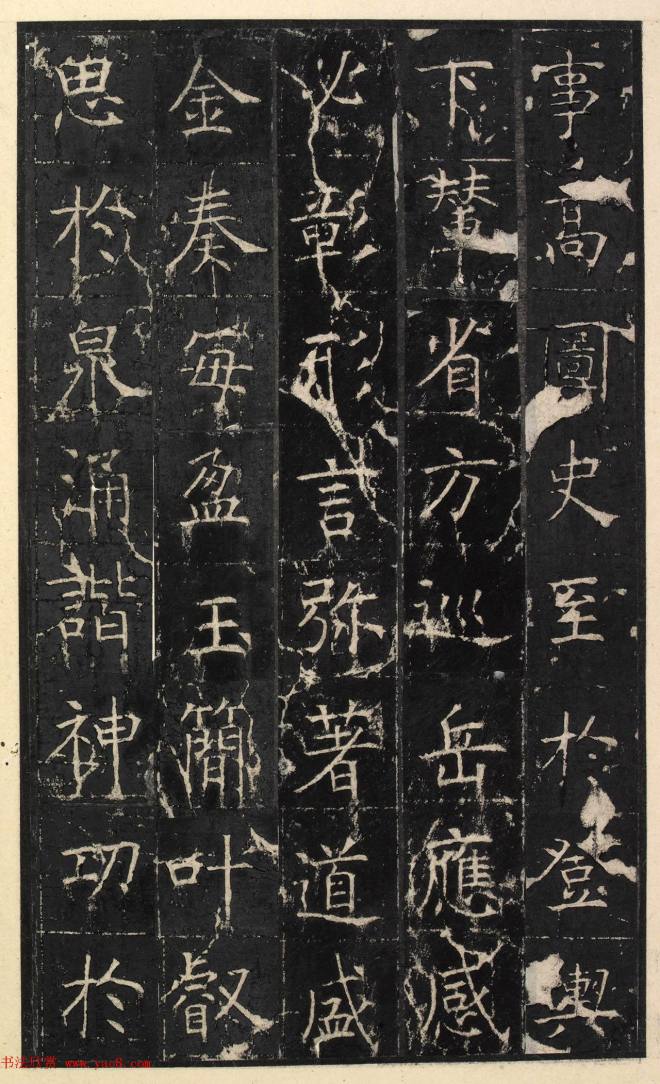 事高圖史至於登輿
下輦省方巡岳應感
必彰形言弥著道盛
金奏每盈玉簡叶叡
思於泉涌諧神功於
书法欣赏 www.yac8.com